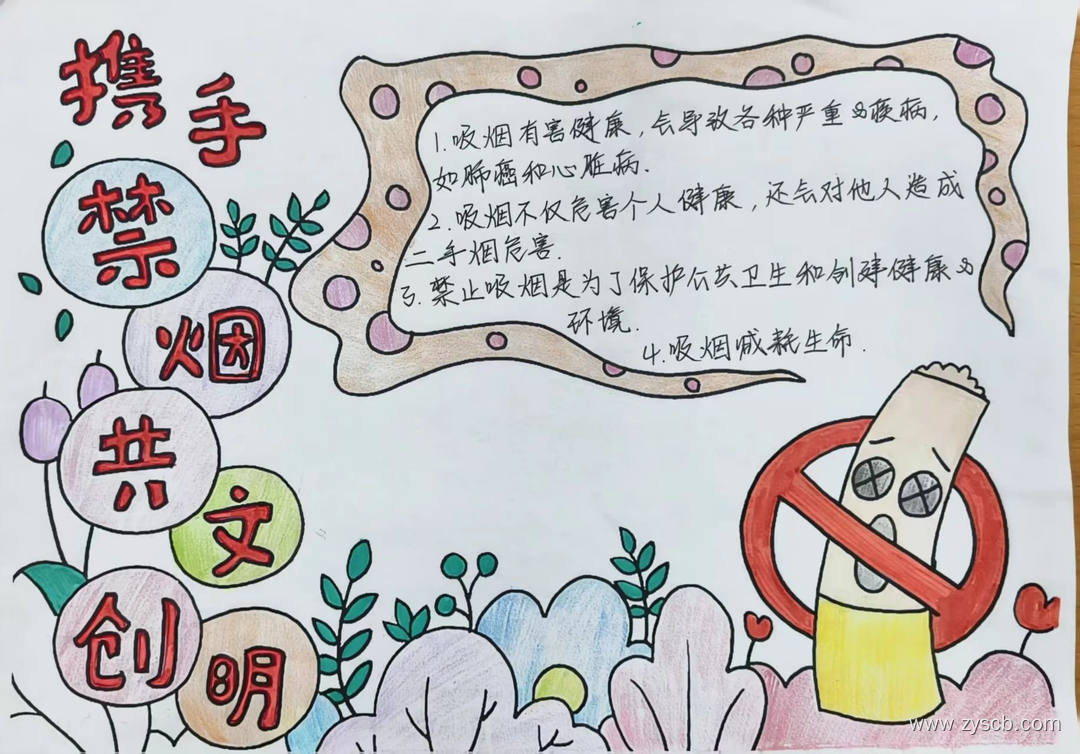 携手
禁
烟
共
文
创
明
1.吸烟有害健康,会导致各种严重的疾病,
如肺癌和心脏病.
2.吸烟不仅危害个人健康,还会对他人造成
二手烟危害.
3.禁止吸烟是为了保护公共卫生和创建健康的
环境.
4.吸烟减耗生命.
www.zyscb.com